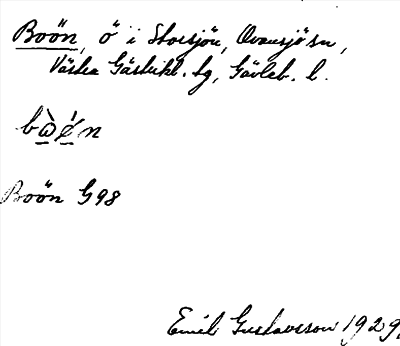 Boön, ö i Storsjön, Ovansjö sn,
Västra Gästrikl. tg, Gävleb. l.
bὼ̲ǿ̲n
Boön G98
Emil Gustavsson 1929.